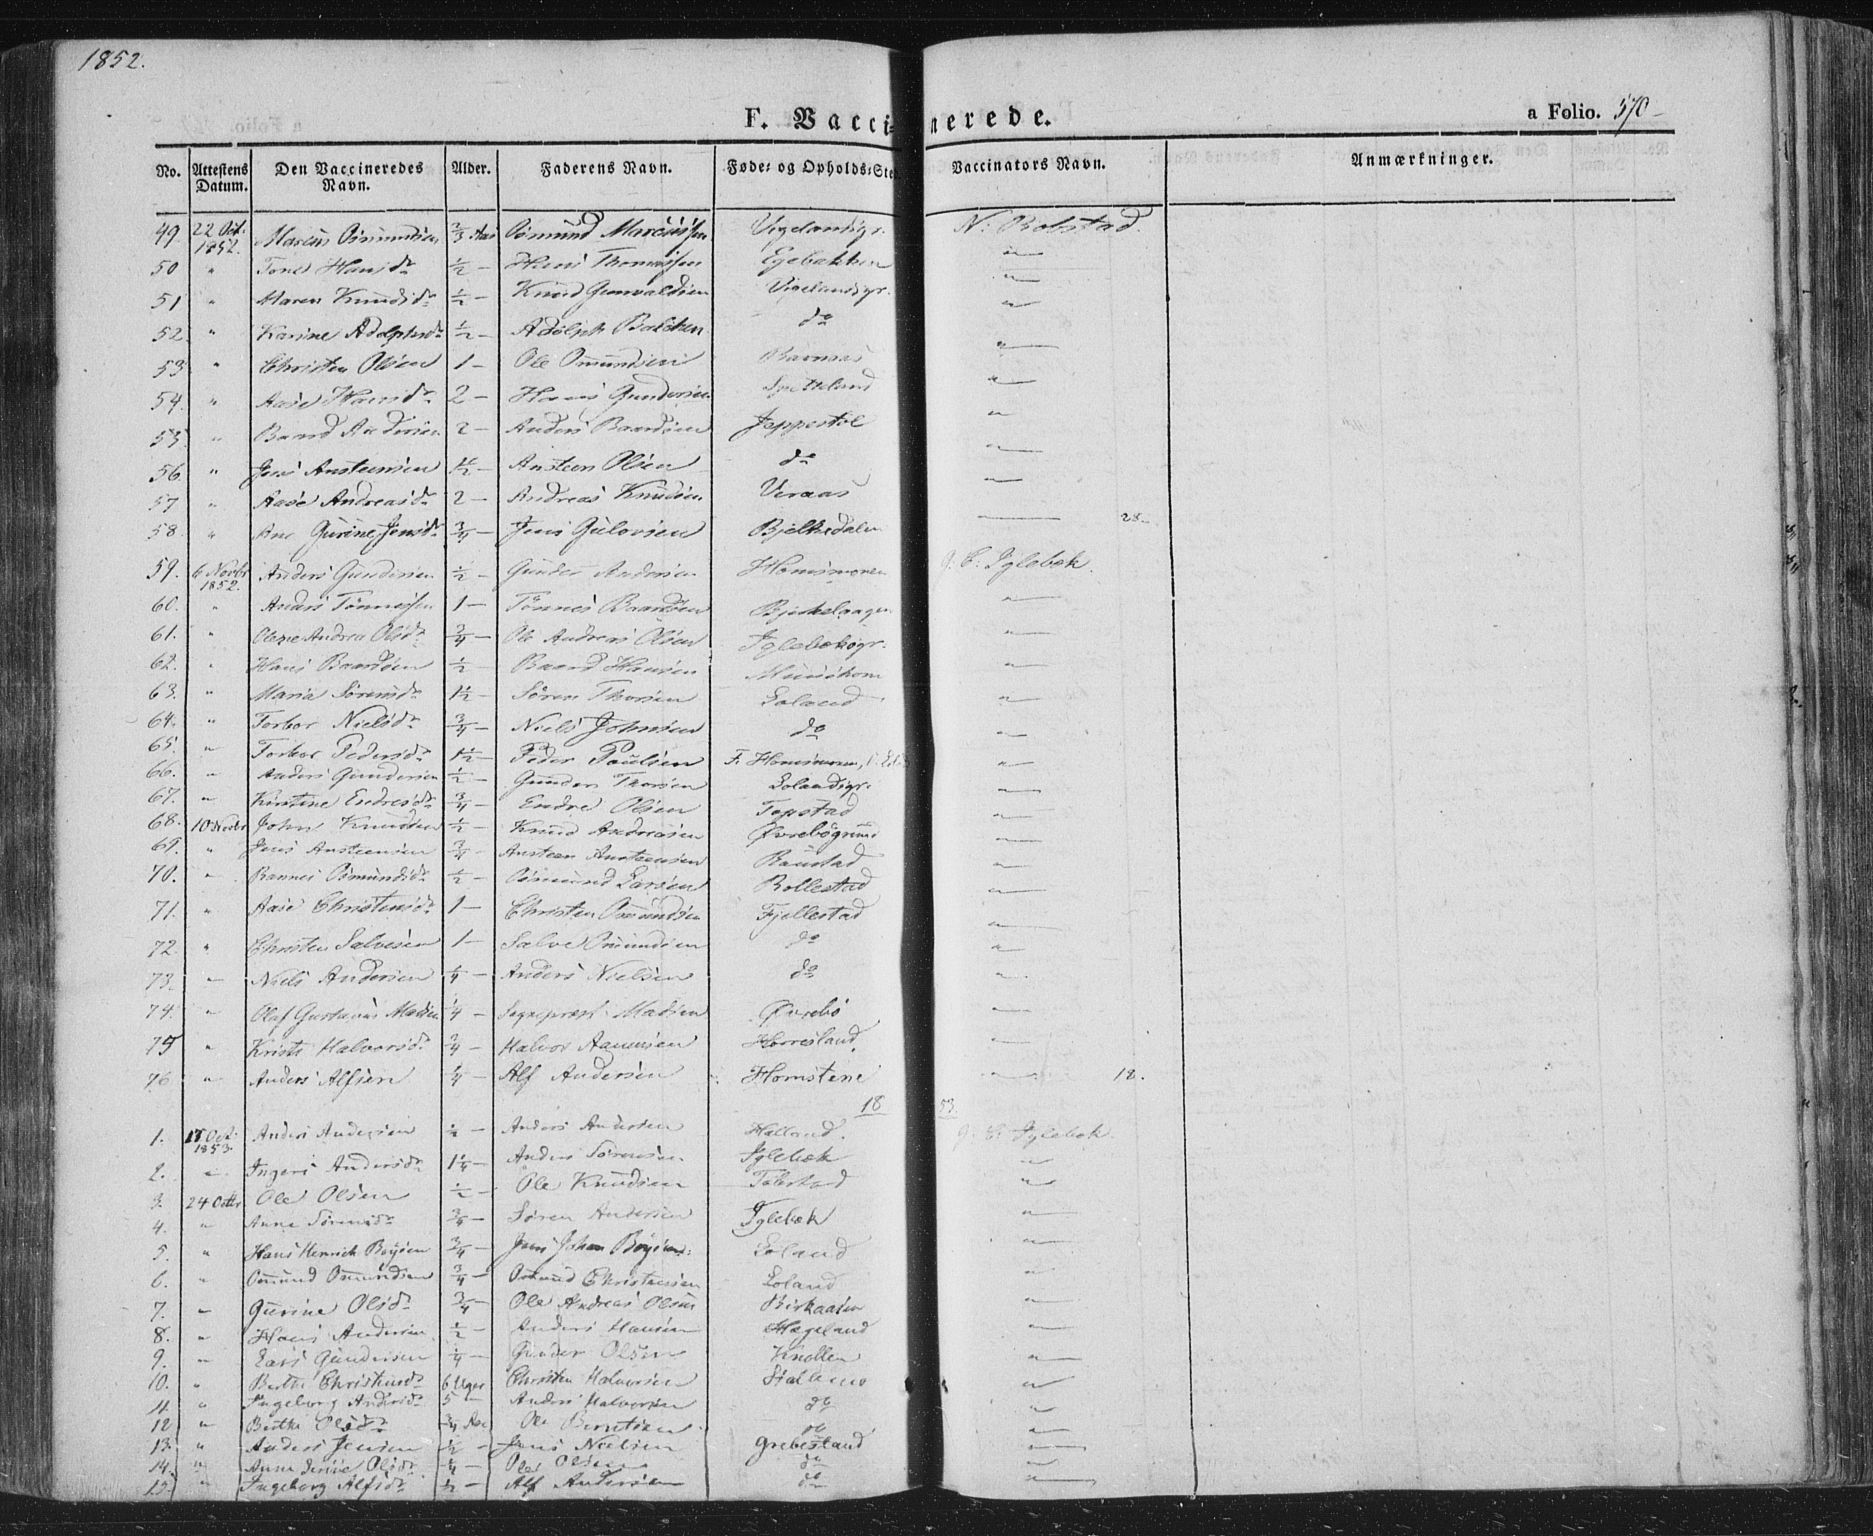 1852.
F. Vaccinerede. a Folio. 570
No. Attestens Datum. Den Vaccineredes Navn. Alder. Faderens Navn. Føde- og Opholds-Sted Vaccinators Navn. Anmærkninger.
49. 22 Oct. 1852. Marcus Osmundsen 2/3 Aar Osmund Marcussen Vigelandsgr. N. Robstad.
50 " Tone Hansdr 1/2 — Hans Thomassen Egebakken "
51 " Maren Knudsdr 1/2 — Knud Gunvaldsen Vigelandsgr. "
52. " Karine Adolphsdr 1/2 — Adolph Balchen do "
53 " Christen Olsen 1 — Ole Omundsen "
54. " Aase Hansdr 2 — Hans Gundersen "
55. " Baard Andersen 2 — Anders Baardsen Jeppestøl "
56. " Jens Austeensen 1 1/2 — Austeen Olsen do "
57 " Aase Andreasdr 2 — Andreas Knudsen Veraas "
58. " Ane Gurine Jensdr 3/4 — Jens Gulovsen Bjelkedalen — 28.
59. 6 Novbr 1852. Anders Gundersen 1/2 — Gunder Andersen Homsmoen G. C. Iglebek.
60. " Anders Tönnessen 1 — Tönnes Baardsen Bjerkelaagen "
61. " Olene Andrea Olsdr 3/4 — Ole Andreas Olsen Iglebeksgr. "
62. " Hans Baardsen 1/2 — Baard Hansen "
63. " Maria Sörensdr 1 1/2 — Sören Thorsen Loland "
64. " Torbor Nielsdr 3/4 — Niels Johnsen do "
65. " Torbor Pedersdr 1 1/2 — Peder Paulsen F. Homsmoen, "
66. " Anders Gundersen 1/2 — Gunder Thorsen Lolandsgr. "
67. " Kirstine Endresdr 3/4 — Endre Olsen Topstad "
68. 10 Novbr John Knudsen 1/2 — Knud Andersen Øvrebögrund "
69. " Jens Austeensen 3/4 — Austeen Austeensen Raustad "
70. " Rannei Osmundsdr 1/2 — Osmund Larsen Rollestad "
71. " Aase Christensdr 1 — Christen Omundsen Fjellestad "
72. " Christen Salvesen 1 — Salve Omundsen do "
73. " Niels Andersen 1/4 — Anders Nielsen do "
74. " Olaf Gustavus Madsen 1/4 — Sognepræst Madsen Øvrebö "
75 " Kristi Halvorsdr 3/4 — Halvor Aanensen Horrisland. "
76 " Anders Alfsen 1/4 — Alf Andersen Homstene " 18.
1853.
1. 17 Oct. 1853. Anders Andersen 1/2 — Anders Andersen Halland. G. C. Iglebek.
2. " Ingeri Andersdr 1 1/4 — Anders Sörensen Iglebæk "
3. 24 Octbr Ole Olsen 1/2 — Ole Knudsen Tolestad "
4. " Anne Sörensdr 3/4 — Sören Andersen Iglebek "
5. " Hans Henrich Boysen 3/4 — Jens Johan Boysen Loland "
6. " Omund Omundsen 3/4 — Omund Christensen Loland "
7. " Gurine Olsdr 3/4 — Ole Andreas Olsen Birkaasen "
8. " Hans Andersen 1/2 — Anders Hansen Hægeland "
9. " Lars Gundersen 1/4 — Gunder Olsen Knollen "
10. " Berthe Christensdr 6 Uger Christen Halvorsen "
11. " Ingeborg Andersdr 5 — Anders Halvorsen do "
12 " Berthe Olsdr 3/4 Aar Ole Berntsen do "
13. " Anders Jensen 1/2 — Jens Nielsen Grebesland "
14. " Anne Olsdr 1/4 — Ole Olsen do "
15. " Ingeborg Alfsdr 1/2 — Alf Andersen do "